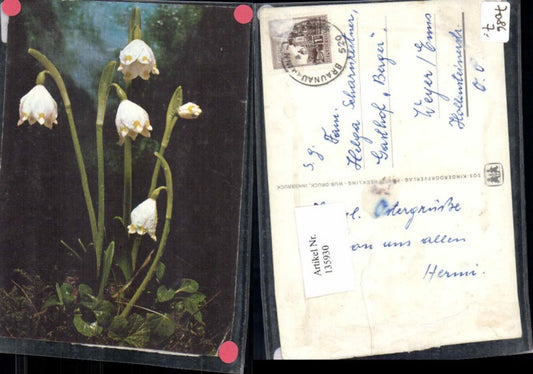 7086
7.
BRAUNAU
5280
S. g. Fam.
Helga Scharnreitner,
Gasthof "Berger"
Weyer/Enns
Hollensteinerstr.
O. Ö.
SOS-KINDERDORFVERLAG
WUB-DRUCK, INNSBRUCK
Artikel Nr.
135930
Ostergrüße
von uns allen
Hermi.